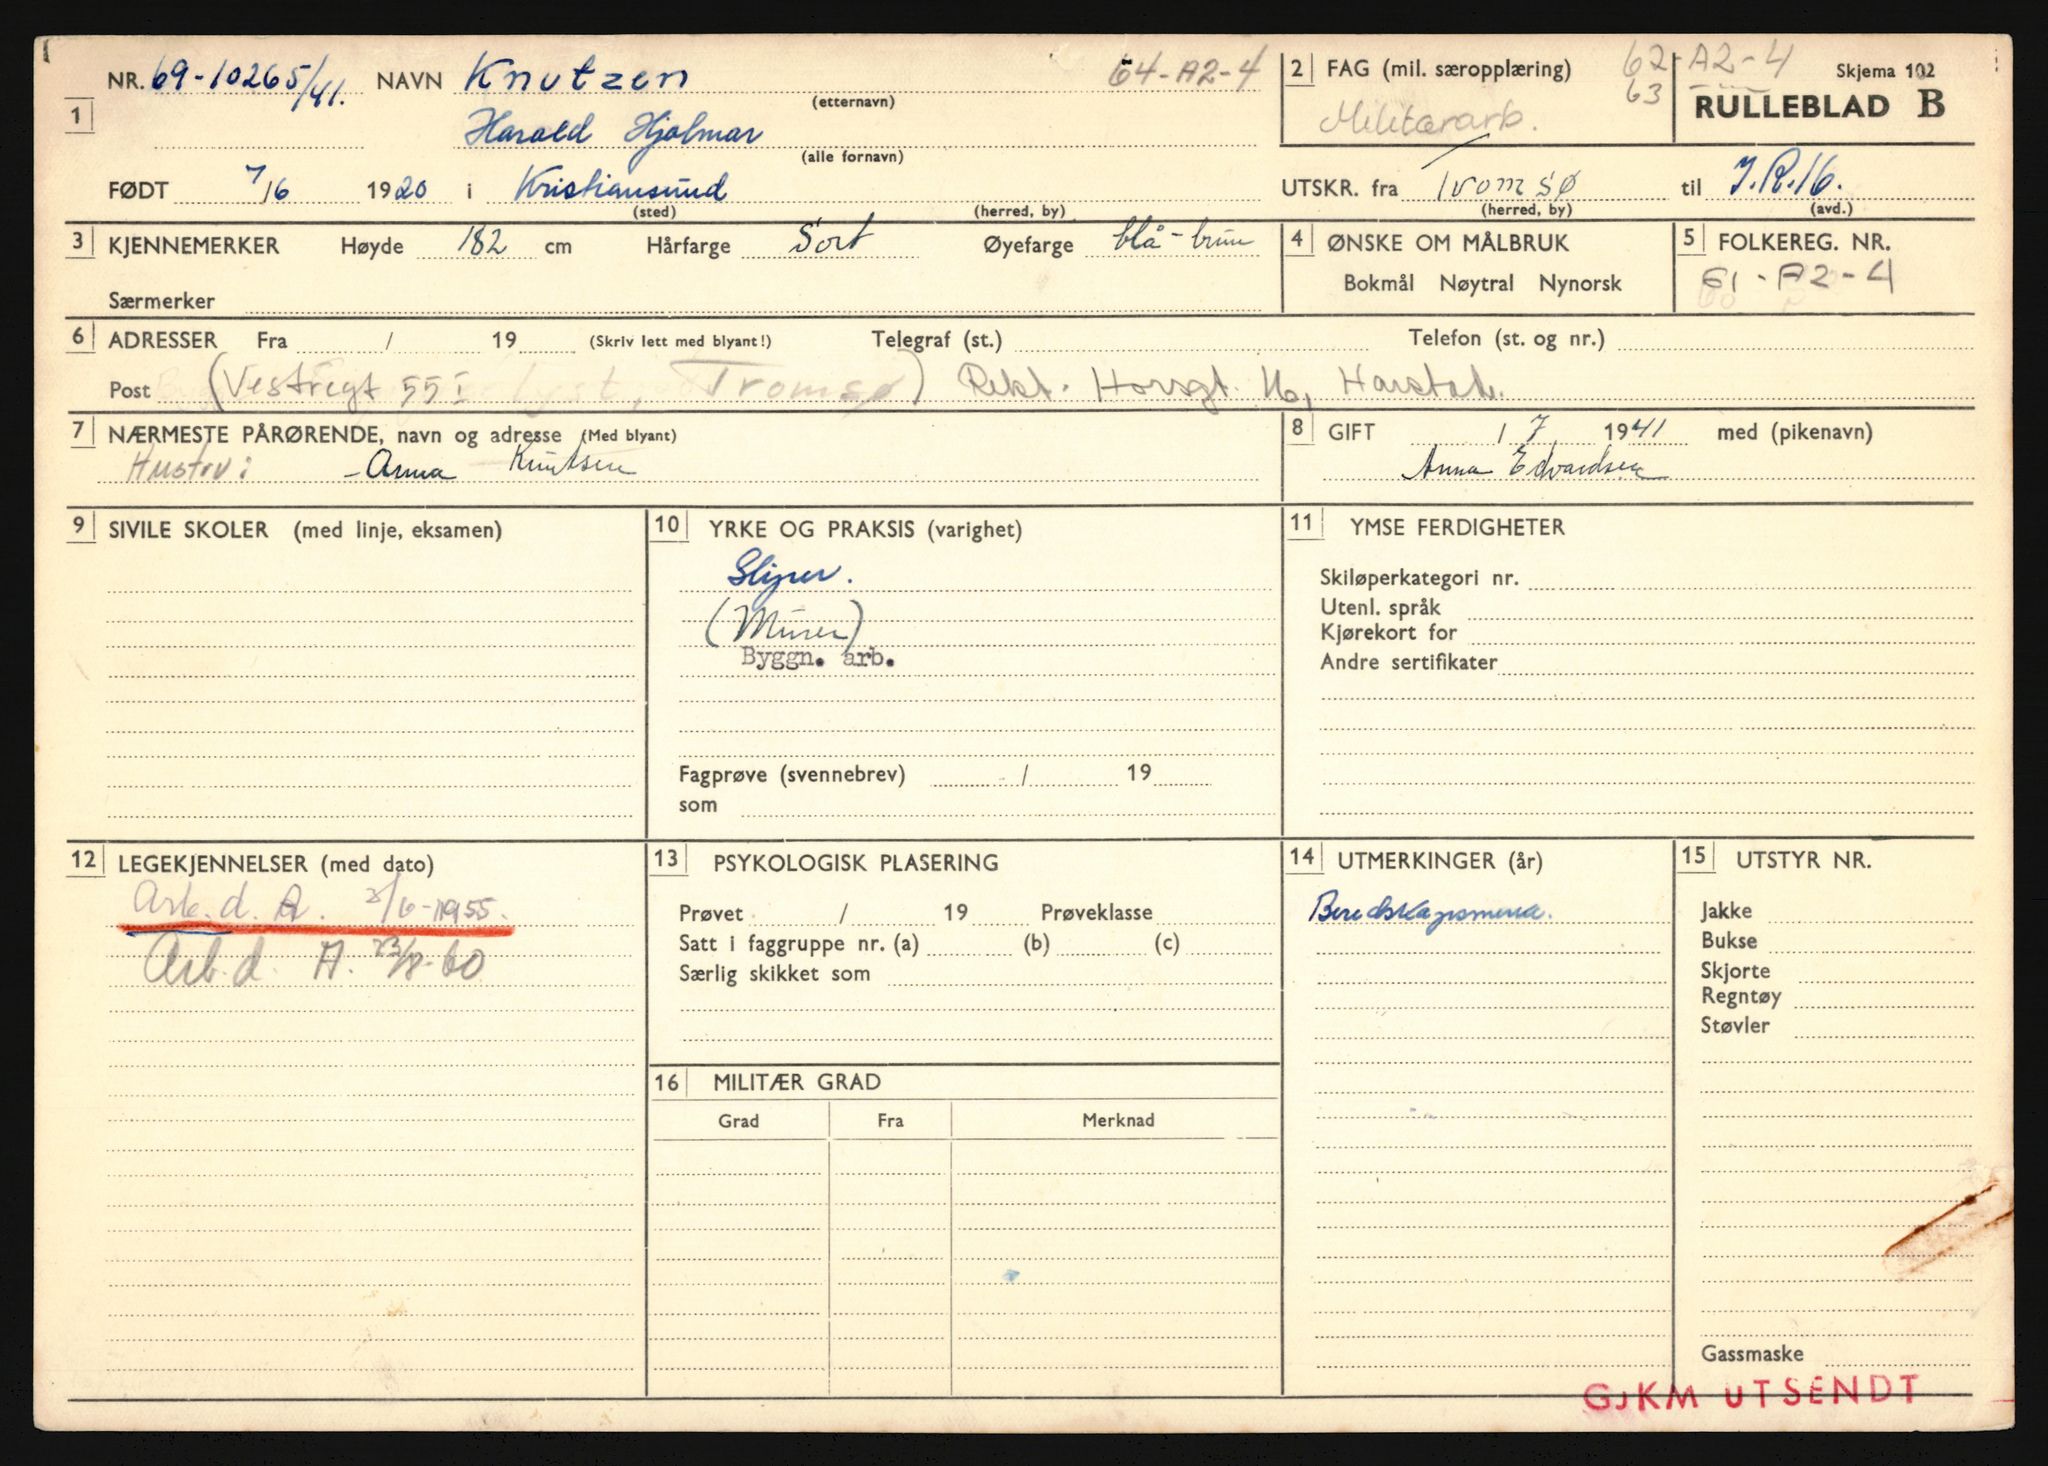 NR. 69-10265/41. NAVN Knutzen 64-A2-4
(etternavn)
1
Harald Hjalmar
(alle fornavn)
FØDT 7/6 1920 i Kristiansund
(sted) (herred, by)
2 FAG (mil. særopplæring) 62-A2-4 Skjema 102
63
Militærarb. RULLEBLAD B
UTSKR. fra Tromsø til I.R.16.
(herred, by) (avd.)
3 KJENNEMERKER Høyde 182 cm Hårfarge Sort Øyefarge blå-brun
Særmerker
4 ØNSKE OM MÅLBRUK
Bokmål Nøytral Nynorsk
5 FOLKEREG. NR.
61-A2-4
6 ADRESSER Fra / 19 (Skriv lett med blyant!) Telegraf (st.) Telefon (st. og nr.)
Post (Vestregt 55 I, Tromsø) Rekt. Horsgt. 16, Harstad.
7 NÆRMESTE PÅRØRENDE, navn og adresse (Med blyant)
Hustru: - Anna Knutsen
8 GIFT / 7 1941 med (pikenavn)
Anna Edvardsen
9 SIVILE SKOLER (med linje, eksamen)
10 YRKE OG PRAKSIS (varighet)
Sliper.
(Murer)
Byggn. arb.
Fagprøve (svennebrev) / 19
som
11 YMSE FERDIGHETER
Skiløperkategori nr.
Utenl. språk
Kjørekort for
Andre sertifikater
12 LEGEKJENNELSER (med dato)
Arb. d. A. 3/6-1955.
Arb. d. A. 23/8-60
13 PSYKOLOGISK PLASERING
Prøvet / 19 Prøveklasse
Satt i faggruppe nr. (a) (b) (c)
Særlig skikket som
14 UTMERKINGER (år)
Beredskapsmed.
15 UTSTYR NR.
Jakke
Bukse
Skjorte
Regntøy
Støvler
Gassmaske
16 MILITÆR GRAD
Grad Fra Merknad
GJKM UTSENDT